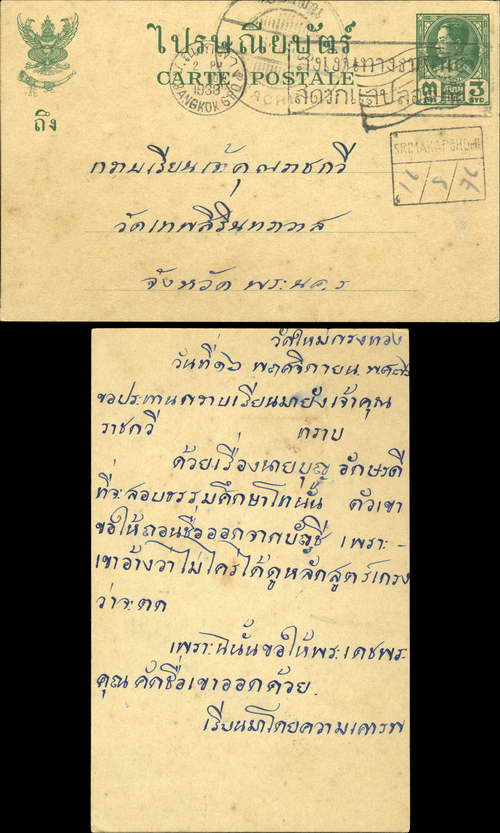 ไปรษณียบัตร์
CARTE POSTALE
ถึง
2 PM
1938
BANGKOK G.P.O.
ส่งเงินทางธนาณัติ
สดวกแลปลอดภัย
๓ สต. 3 STG.
SRIMAHAPHOHDI
16/8/76
กราบเรียนเจ้าคุณราชกวี
วัดเทพศิรินทราวาส
จังหวัด พระนคร
วัดใหม่กรงทอง
วันที่ ๑๖ พฤศจิกายน พ.ศ. ๘๑
ขอประทานกราบเรียนมายังเจ้าคุณ
ราชกวี ทราบ
ด้วยเรื่องนายบุญ อักษรดี
ที่จะสอบธรรมศึกษาโทนั้น ตัวเขา
ขอให้ถอนชื่อออกจากบัญชี เพราะ-
เขาอ้างว่าไม่ใคร่ได้ดูหลักสูตร์เกรง
ว่าจะตก
เพราะฉนั้นขอให้พระเดชพระ
คุณ คัดชื่อเขาออกด้วย.
เรียนมาโดยความเคารพ